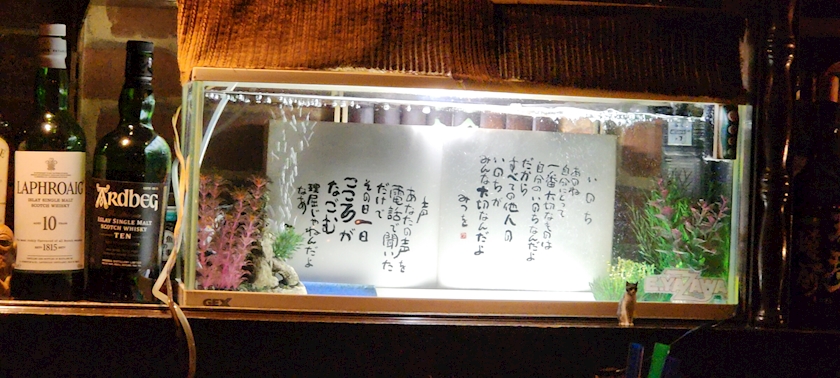 LAPHROAIG
ISLAY SINGLE MALT
SCOTCH WHISKY
10
1815
ARDBEG
ISLAY SINGLE MALT
SCOTCH WHISKY
TEN
いのち
あのね
自分にとって
一番大切なものは
自分のいのちなんだよ
だから
すべての他人の
いのちが
みんな大切なんだよ
みつを
声
あなたの声を
電話で聞いた
だけで
その日一日
こころが
なごむ
理屈じゃねんだよ
なあ
GEX